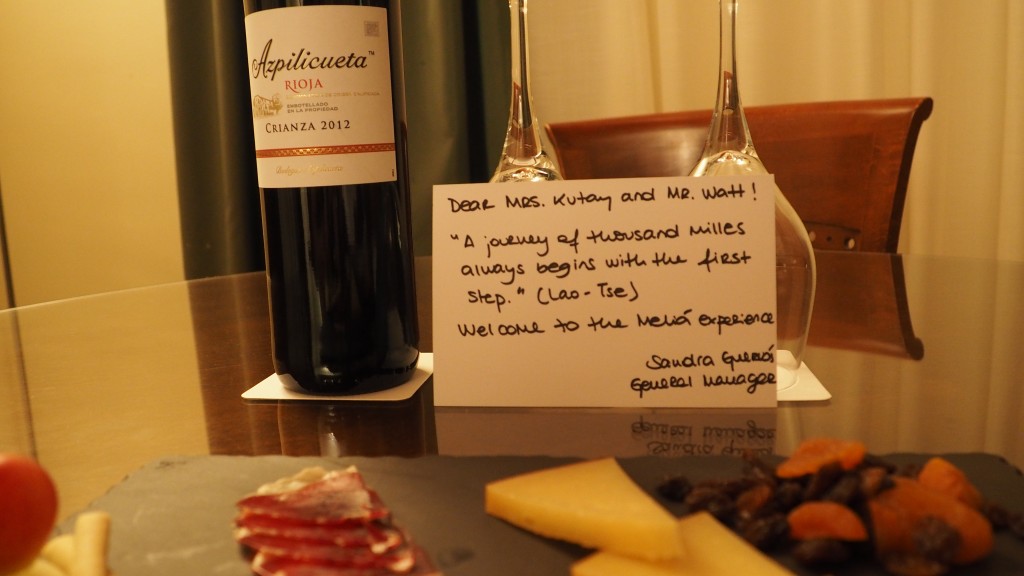 Azpilicueta™
RIOJA
EMBOTELLADO
EN LA PROPIEDAD
CRIANZA 2012
Dear Mrs. Kutay and Mr. Watt!
"A journey of thousand milles
always begins with the first
step." (Lao-Tse)
Welcome to the Meliá experience
Sandra
General Manager